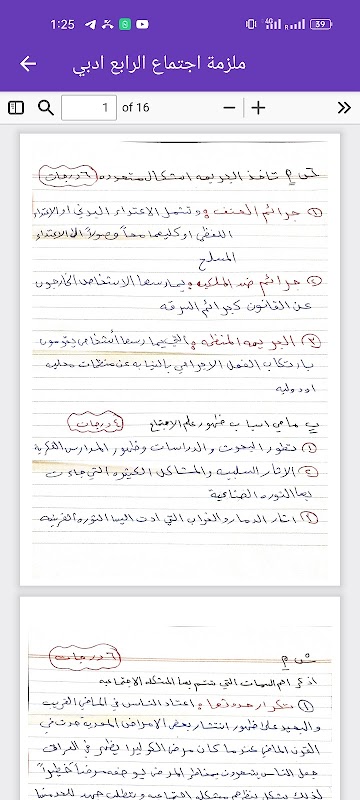 1:25
39
ملزمة اجتماع الرابع ادبي
1 of 16
س٦ م تاخذ الجريمه اشكال متعدده ٦ درجات
① جرائم العنف: وتشمل الاعتداء البدني او الاعتداء
اللفظي او كليهما معاً وصولاً الى الاعتداء
المسلح
② جرائم ضد الملكيه: يمارسها الاشخاص الخارجون
عن القانون كجرائم السرقه
③ الجريمه المنظمه: التي يمارسها أشخاص يقومون
بارتكاب الفعل الاجرامي بالنيابه عن منظمات محليه
او دوليه
ب ما هي اسباب ظهور علم الاجتماع ٤ درجات
① تطور البحوث والدراسات وظهور المدارس الفكرية
② الاثار السلبيه والمشاكل الكثيره التي جاءت
بها الثوره الصناعية
③ اثار الدمار والخراب التي ادت اليها الثوره الفرنسيه
س م ٦ درجات
اذكر اهم السمات التي تتسم بها المشكله الاجتماعيه
① تكرار حدوثها: اعتاد الناس في الماضي القريب
والبعيد على ظهور انتشار بعض الامراض المعدية حدث في
القرن الماضي عندما كان مرض الكوليرا يظهر في العراق
جعل الناس يشعرون بمخاطر المرض بوصفه مرضاً خطيراً